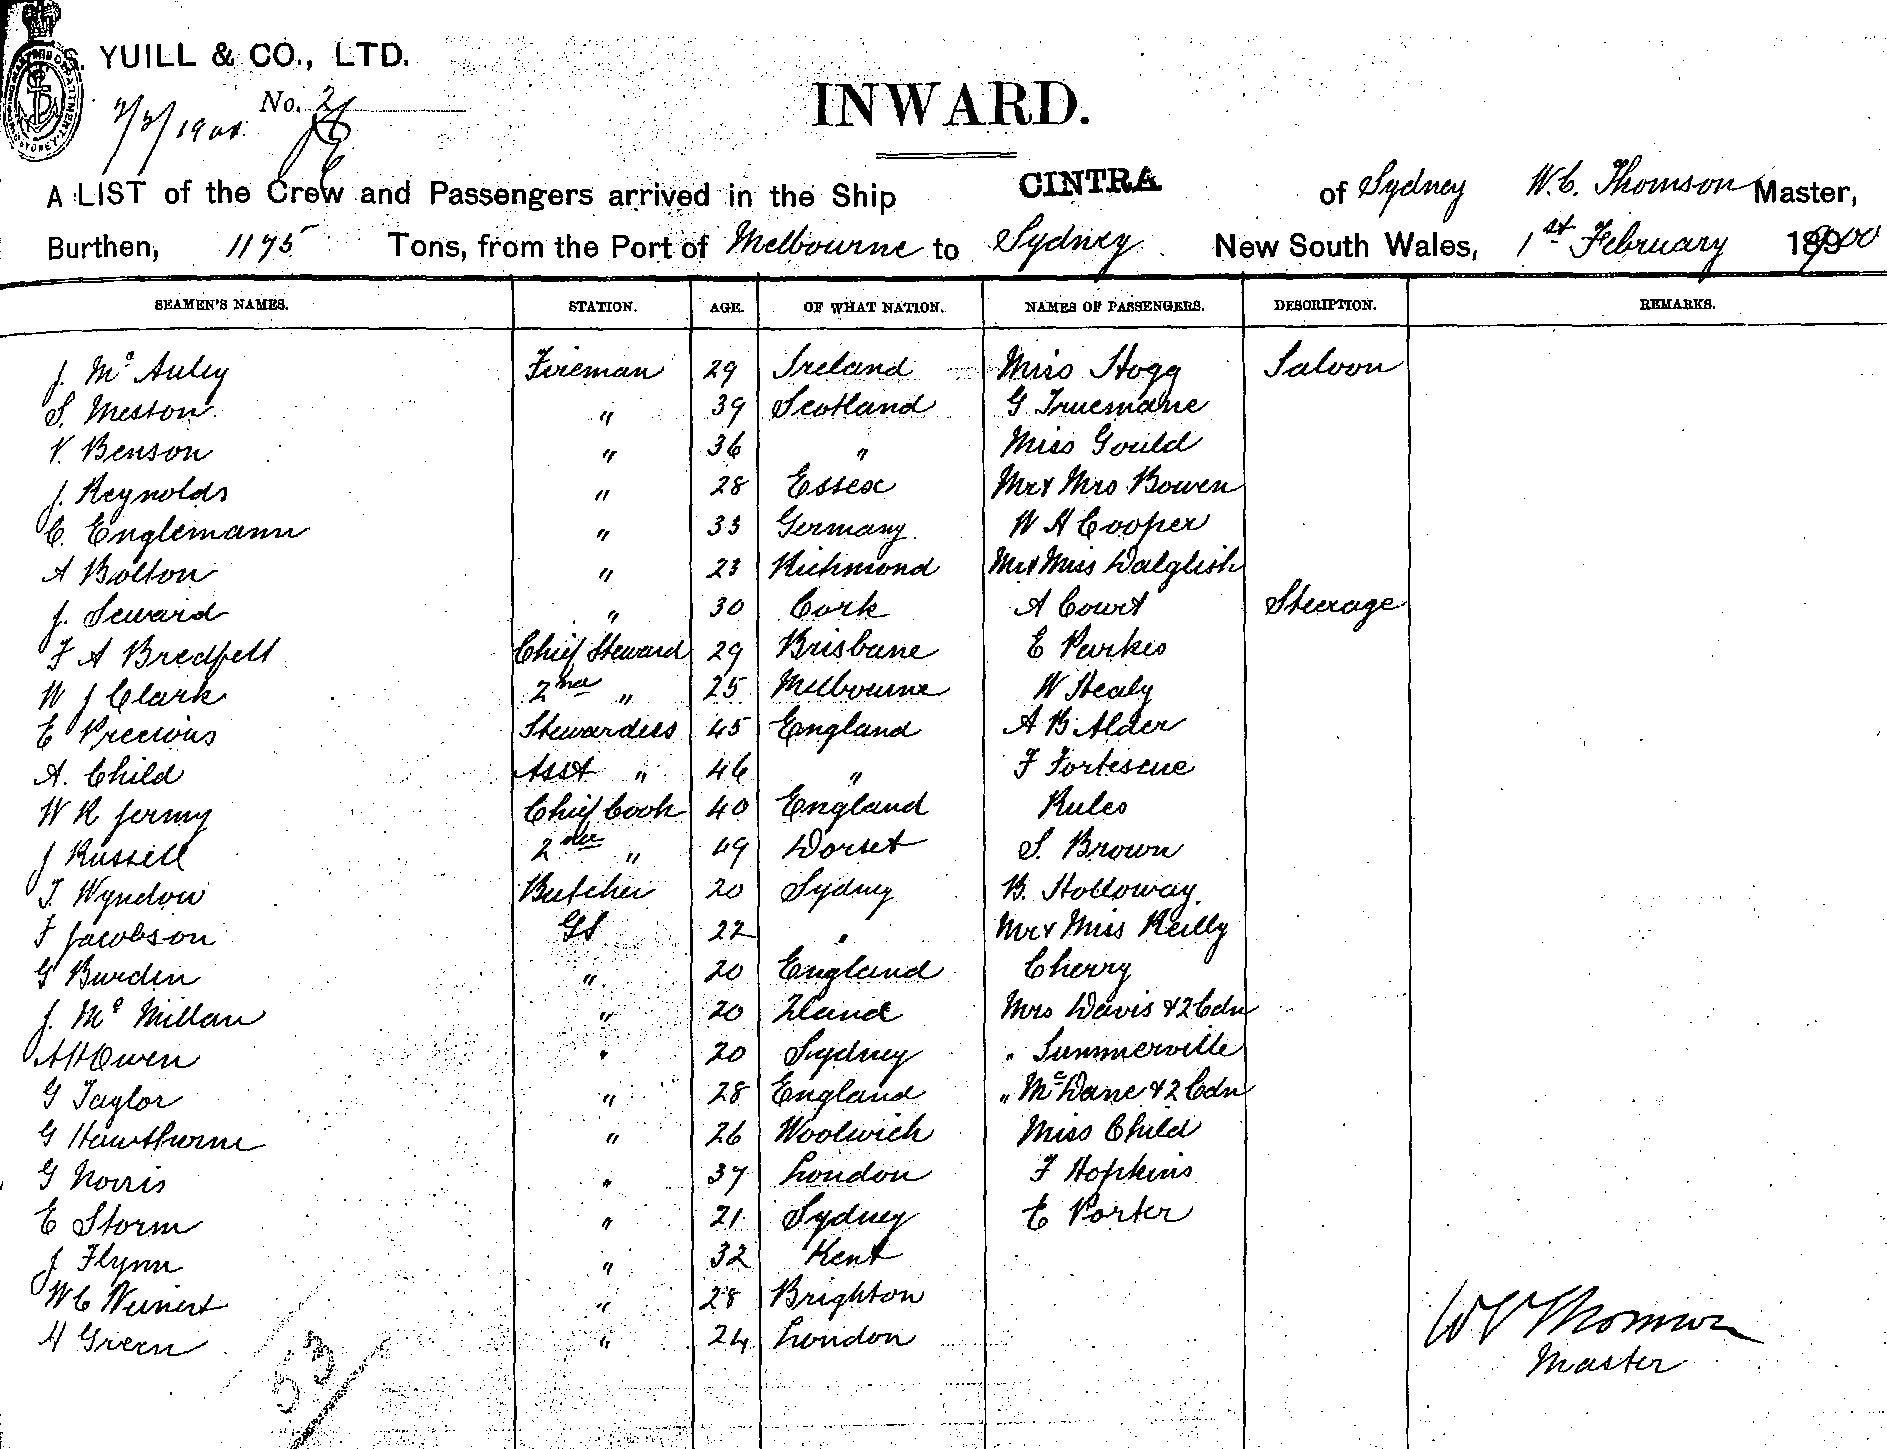 YUILL & CO., LTD.
No. 2
INWARD.
A LIST of the Crew and Passengers arrived in the Ship CINTRA of Sydney W. C. Thomson Master,
Burthen, 1175 Tons, from the Port of Melbourne to Sydney New South Wales, 1st February 1900
SEAMEN'S NAMES. STATION. AGE. OF WHAT NATION. NAMES OF PASSENGERS. DESCRIPTION. REMARKS.
J. Mc Auley Fireman 29 Ireland Miss Hogg Saloon
S. Meston " 39 Scotland G Truemane
V. Benson " 36 " Miss Gould
J. Reynolds " 28 Essex Mr & Mrs Bowen
C. Englemann " 33 Germany W H Cooper
A Bolton " 23 Richmond Mr & Miss Dalglish
J. Seward " 30 Cork A Court Steerage
F A Bredfelt Chief Steward 29 Brisbane E Parkes
W J Clark 2nd " 25 Melbourne W Healy
E Precious Stewardess 45 England A B Alder
A. Child Asst " 46 " F Fortescue
W R Jermy Chief Cook 40 England Rules
J Russell 2nd " 49 Dorset S. Brown
T. Wyndow Butcher 20 Sydney B. Holloway
F Jacobson GS 22 " Mr & Miss Reilly
G Burden " 20 England Cherry
J. Mc Millan " 20 Zland Mrs Davis & 2 Cdn
A H Owen " 20 Sydney " Summerville
G Taylor " 28 England " Mc Dane & 2 Cdn
G Hawthorne " 26 Woolwich Miss Child
G Norris " 37 London F Hopkins
E Storm " 21 Sydney E Porter
J Flynn " 32 Kent
W C Weinert " 28 Brighton
H Green " 24 London
W C Thomson
Master
53